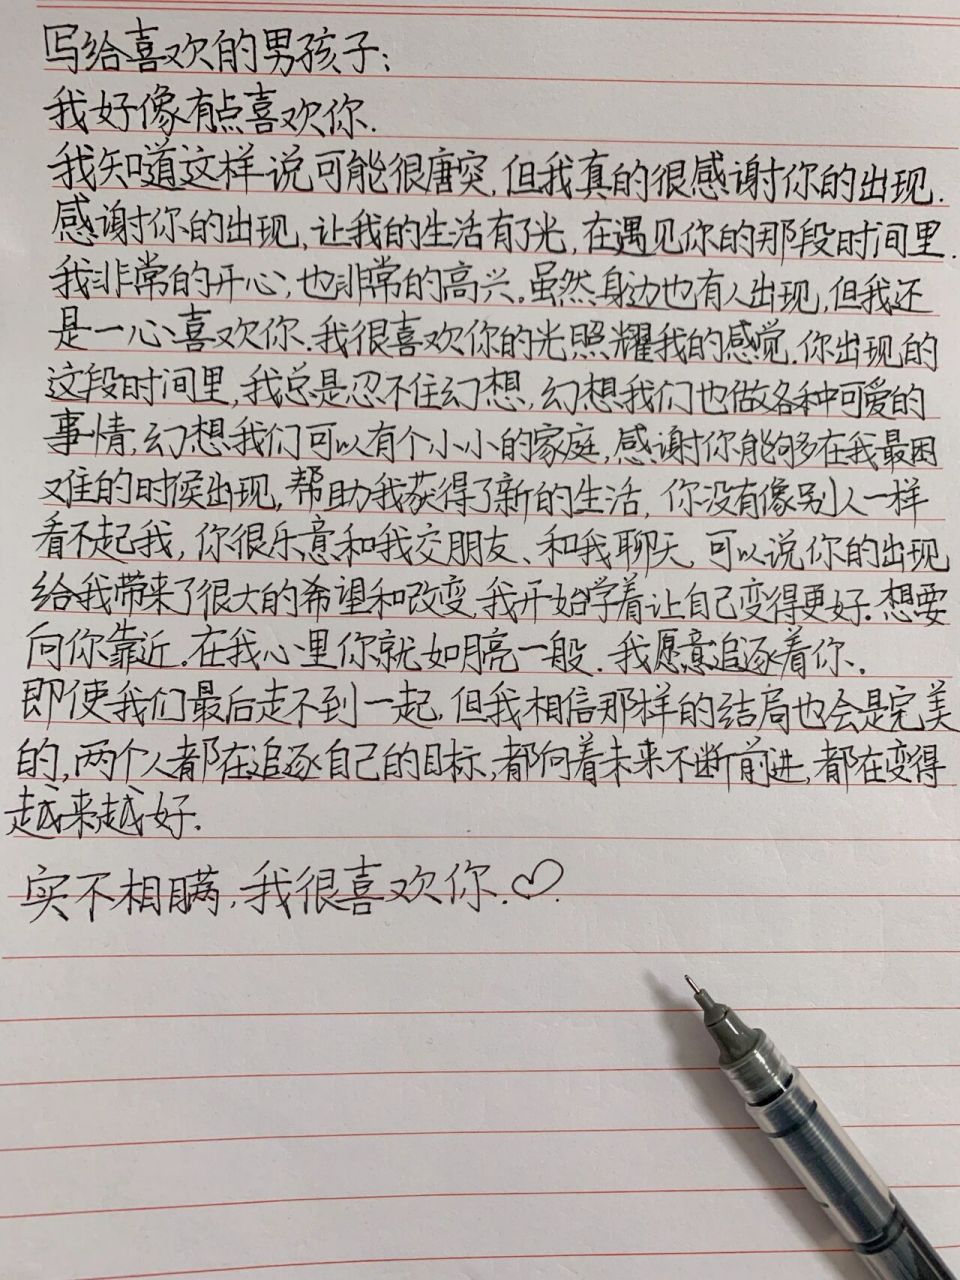 写给喜欢的男孩子:
我好像有点喜欢你.
我知道这样说可能很唐突,但我真的很感谢你的出现.
感谢你的出现,让我的生活有了光,在遇见你的那段时间里.
我非常的开心,也非常的高兴.虽然身边也有人出现,但我还
是一心喜欢你.我很喜欢你的光照耀我的感觉.你出现的
这段时间里,我总是忍不住幻想,幻想我们也做各种可爱的
事情,幻想我们可以有个小小的家庭,感谢你能够在我最困
难的时候出现,帮助我获得了新的生活,你没有像别人一样
看不起我,你很乐意和我交朋友、和我聊天.可以说你的出现
给我带来了很大的希望和改变.我开始学着让自己变得更好.想要
向你靠近.在我心里你就如月亮一般.我愿意追逐着你.
即使我们最后走不到一起,但我相信那样的结局也会是完美
的,两个人都在追逐自己的目标,都向着未来不断前进,都在变得
越来越好.
实不相瞒,我很喜欢你.♡.